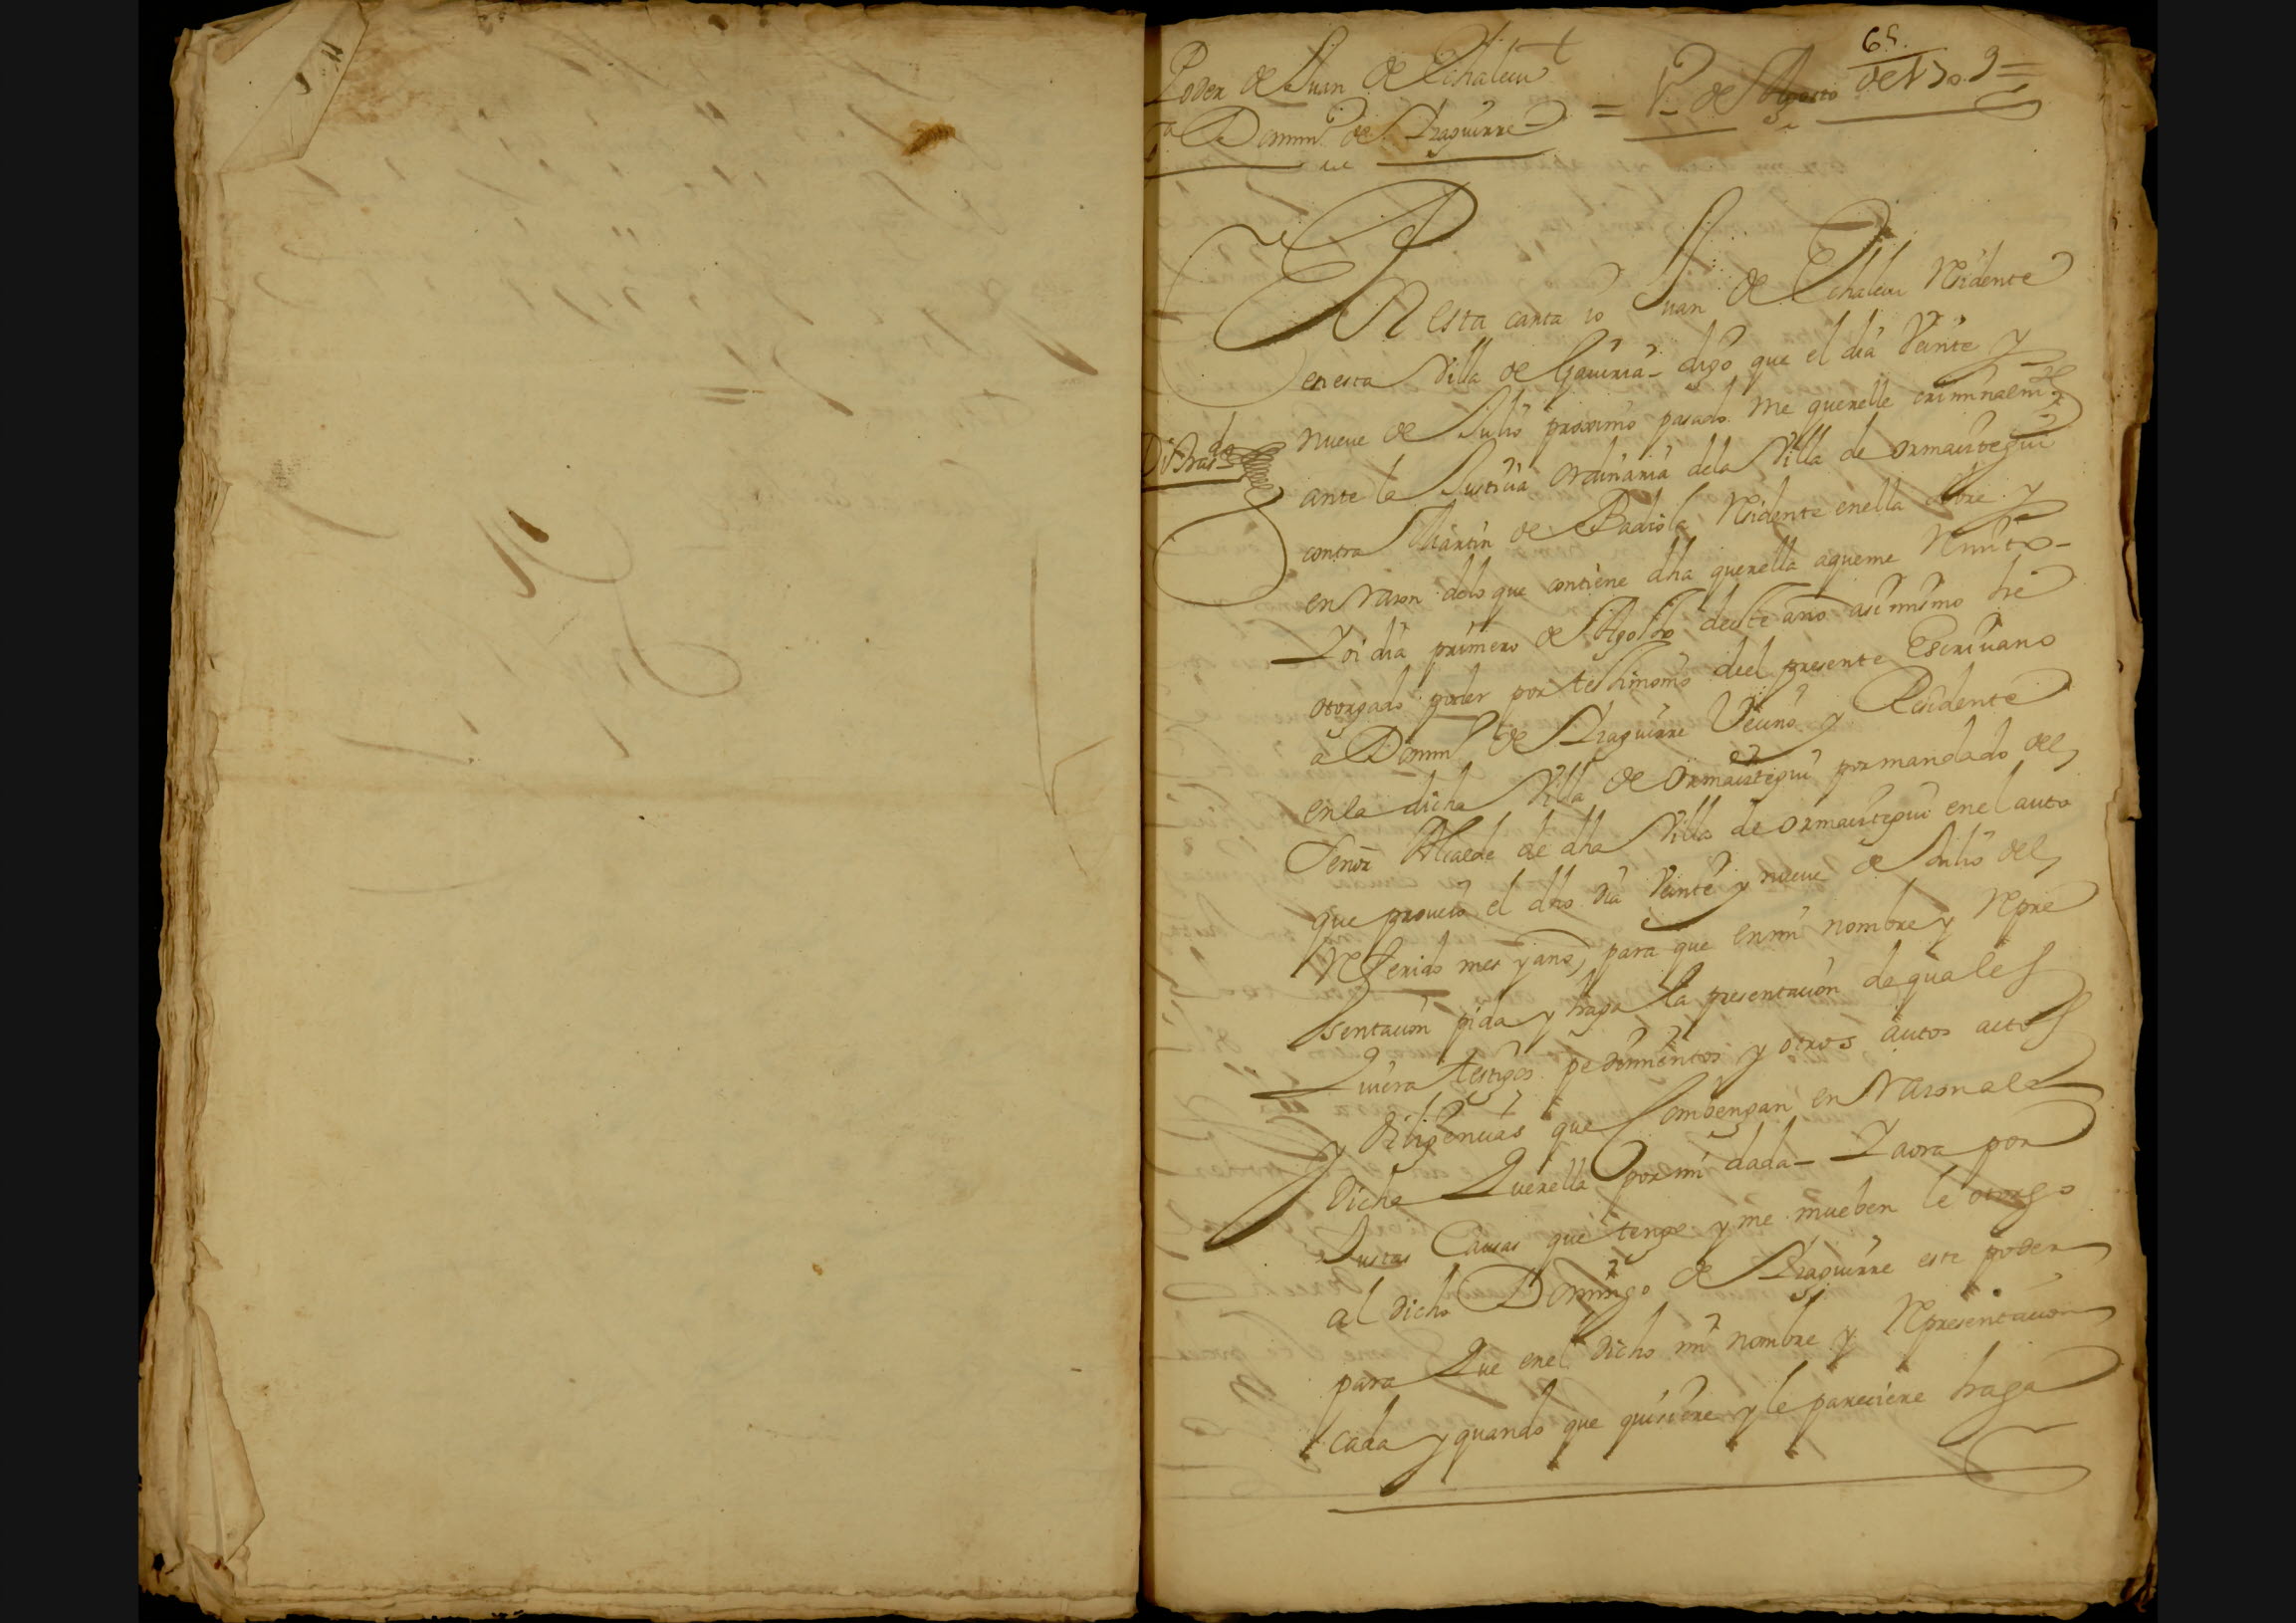 65.
Poder de Juan de Echalecu
a Domin.º de Yraguirre = 1º de Agosto de 1709 =
EN esta carta io Juan de Echalecu Residente
en esta Villa de Gauiria - digo que el dia Veinte y
nueue de Julio proximo pasado me querelle criminalm.te
ante la Justicia ordinaria dela Villa de ormaiztegui
contra Martin de Badiola Residente enella sobre y
en raçon delo que contiene dha querella aqueme Remito -
Y oi dia primero de Agosto deeste año asimismo he
otorgado poder por testimonio deel presente Escriuano
a Domin.º de Yraguirre Vecino y Residente
en la dicha Villa de ormaiztegui por mandado del
Señor Alcalde de dha Villa de ormaiztegui en el auto
que proueio el dho dia Veinte y nueue de Julio del
Referido mes y año, para que en mi nombre y Repre
sentacion pida y haga la presentacion de quales
Quiera testigos pedimientos y otros autos actos
y diligencias que Combengan en Raçon a la
dicha Querella por mi dada - Y aora por
Justas Causas que tengo y me mueben le otorgo
al dicho Domingo de Yraguirre este poder
para Que en el dicho mi nombre y Representacion
cada y quando que quisiere y le pareciere haga